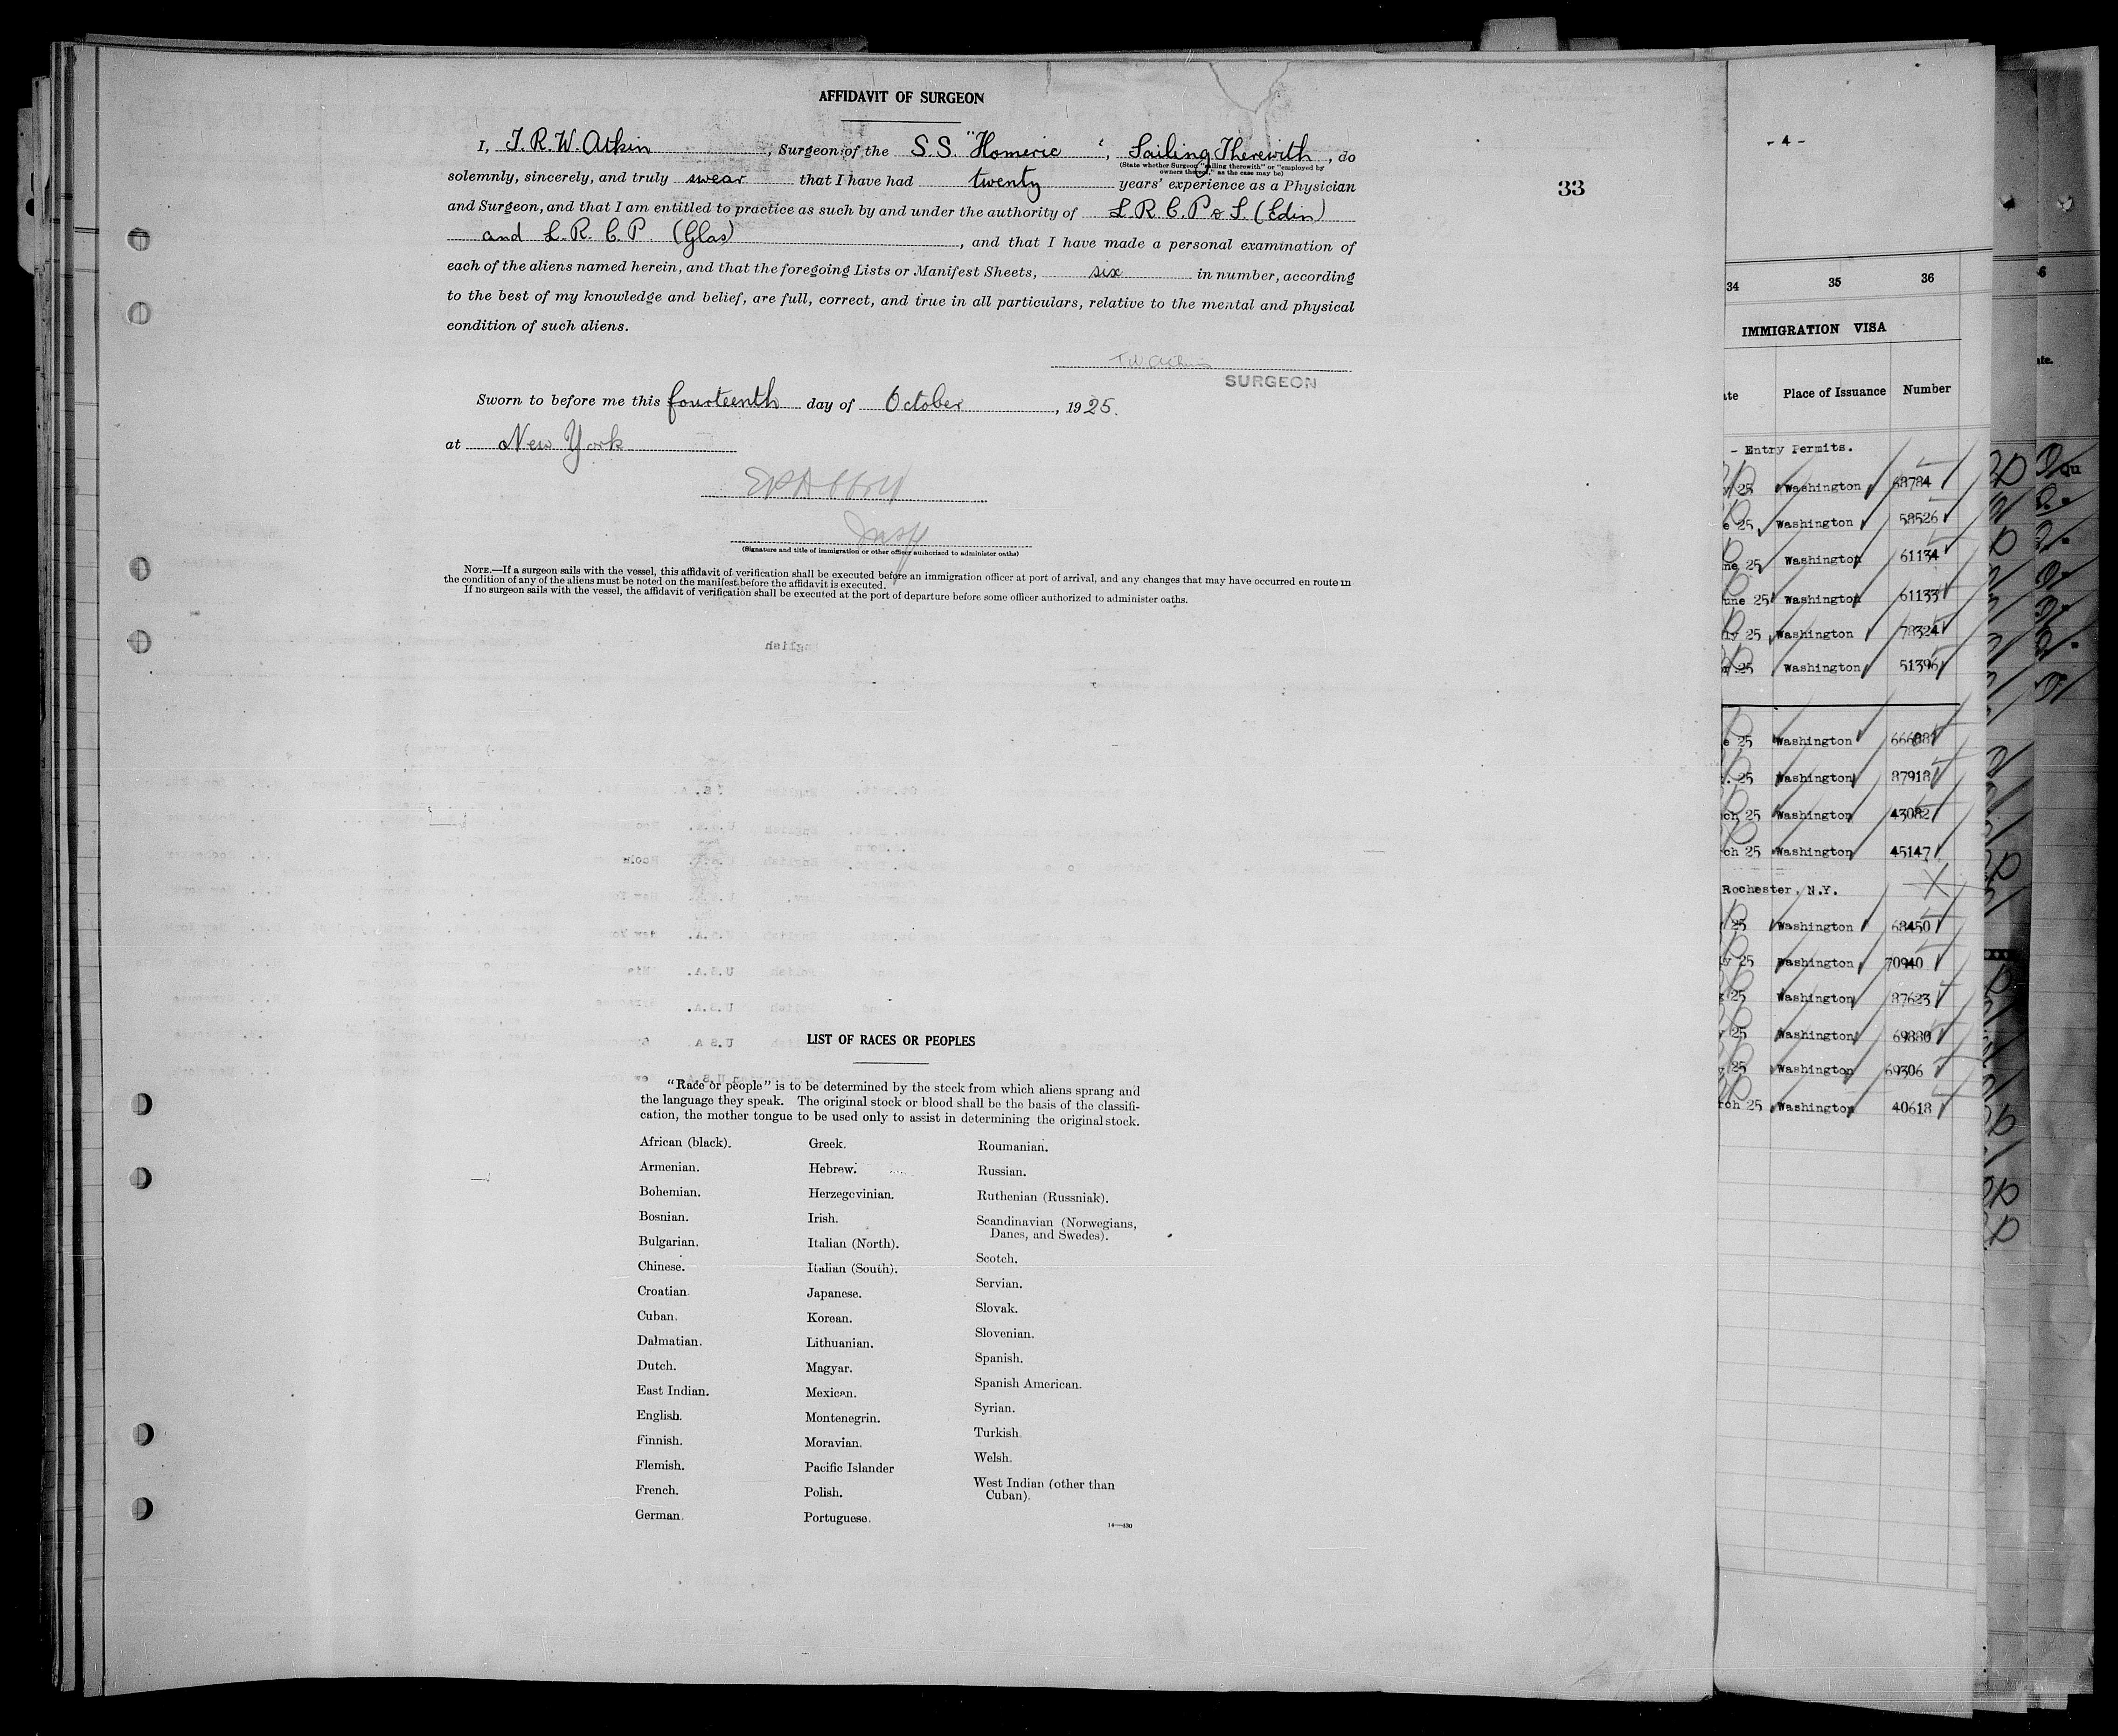 AFFIDAVIT OF SURGEON
I, T. R. W. Atkin, Surgeon of the S.S. "Homeric", Sailing Therewith, do
(State whether Surgeon "sailing therewith" or "employed by
owners thereof," as the case may be)
solemnly, sincerely, and truly swear that I have had twenty years' experience as a Physician
and Surgeon, and that I am entitled to practice as such by and under the authority of L. R. C. P & S. (Edin)
and L. R. C. P. (Glas), and that I have made a personal examination of
each of the aliens named herein, and that the foregoing Lists or Manifest Sheets, six in number, according
to the best of my knowledge and belief, are full, correct, and true in all particulars, relative to the mental and physical
condition of such aliens.
SURGEON
Sworn to before me this fourteenth day of October, 1925.
at New York
Insp
(Signature and title of immigration or other officer authorized to administer oaths)
NOTE.—If a surgeon sails with the vessel, this affidavit of verification shall be executed before an immigration officer at port of arrival, and any changes that may have occurred en route in
the condition of any of the aliens must be noted on the manifest before the affidavit is executed.
If no surgeon sails with the vessel, the affidavit of verification shall be executed at the port of departure before some officer authorized to administer oaths.
33
LIST OF RACES OR PEOPLES
"Race or people" is to be determined by the stock from which aliens sprang and
the language they speak. The original stock or blood shall be the basis of the classifi-
cation, the mother tongue to be used only to assist in determining the original stock.
African (black).
Armenian.
Bohemian.
Bosnian.
Bulgarian.
Chinese.
Croatian.
Cuban.
Dalmatian.
Dutch.
East Indian.
English.
Finnish.
Flemish.
French.
German.
Greek.
Hebrew.
Herzegovinian.
Irish.
Italian (North).
Italian (South).
Japanese.
Korean.
Lithuanian.
Magyar.
Mexican.
Montenegrin.
Moravian.
Pacific Islander
Polish.
Portuguese.
Roumanian.
Russian.
Ruthenian (Russniak).
Scandinavian (Norwegians,
Danes, and Swedes).
Scotch.
Servian.
Slovak.
Slovenian.
Spanish.
Spanish American.
Syrian.
Turkish.
Welsh.
West Indian (other than
Cuban).
14—430
- 4 -
34 35 36
IMMIGRATION VISA
Place of Issuance Number
- Entry Permits.
25 Washington 68784
25 Washington 58526
25 Washington 61134
une 25 Washington 61133
25 Washington 78324
25 Washington 51396
25 Washington
25 Washington 87918
ch 25 Washington 43082
ch 25 Washington 45147
Rochester, N.Y.
25 Washington 68450
25 Washington 70940
25 Washington 87623
25 Washington 69880
25 Washington 69306
rch 25 Washington 40618